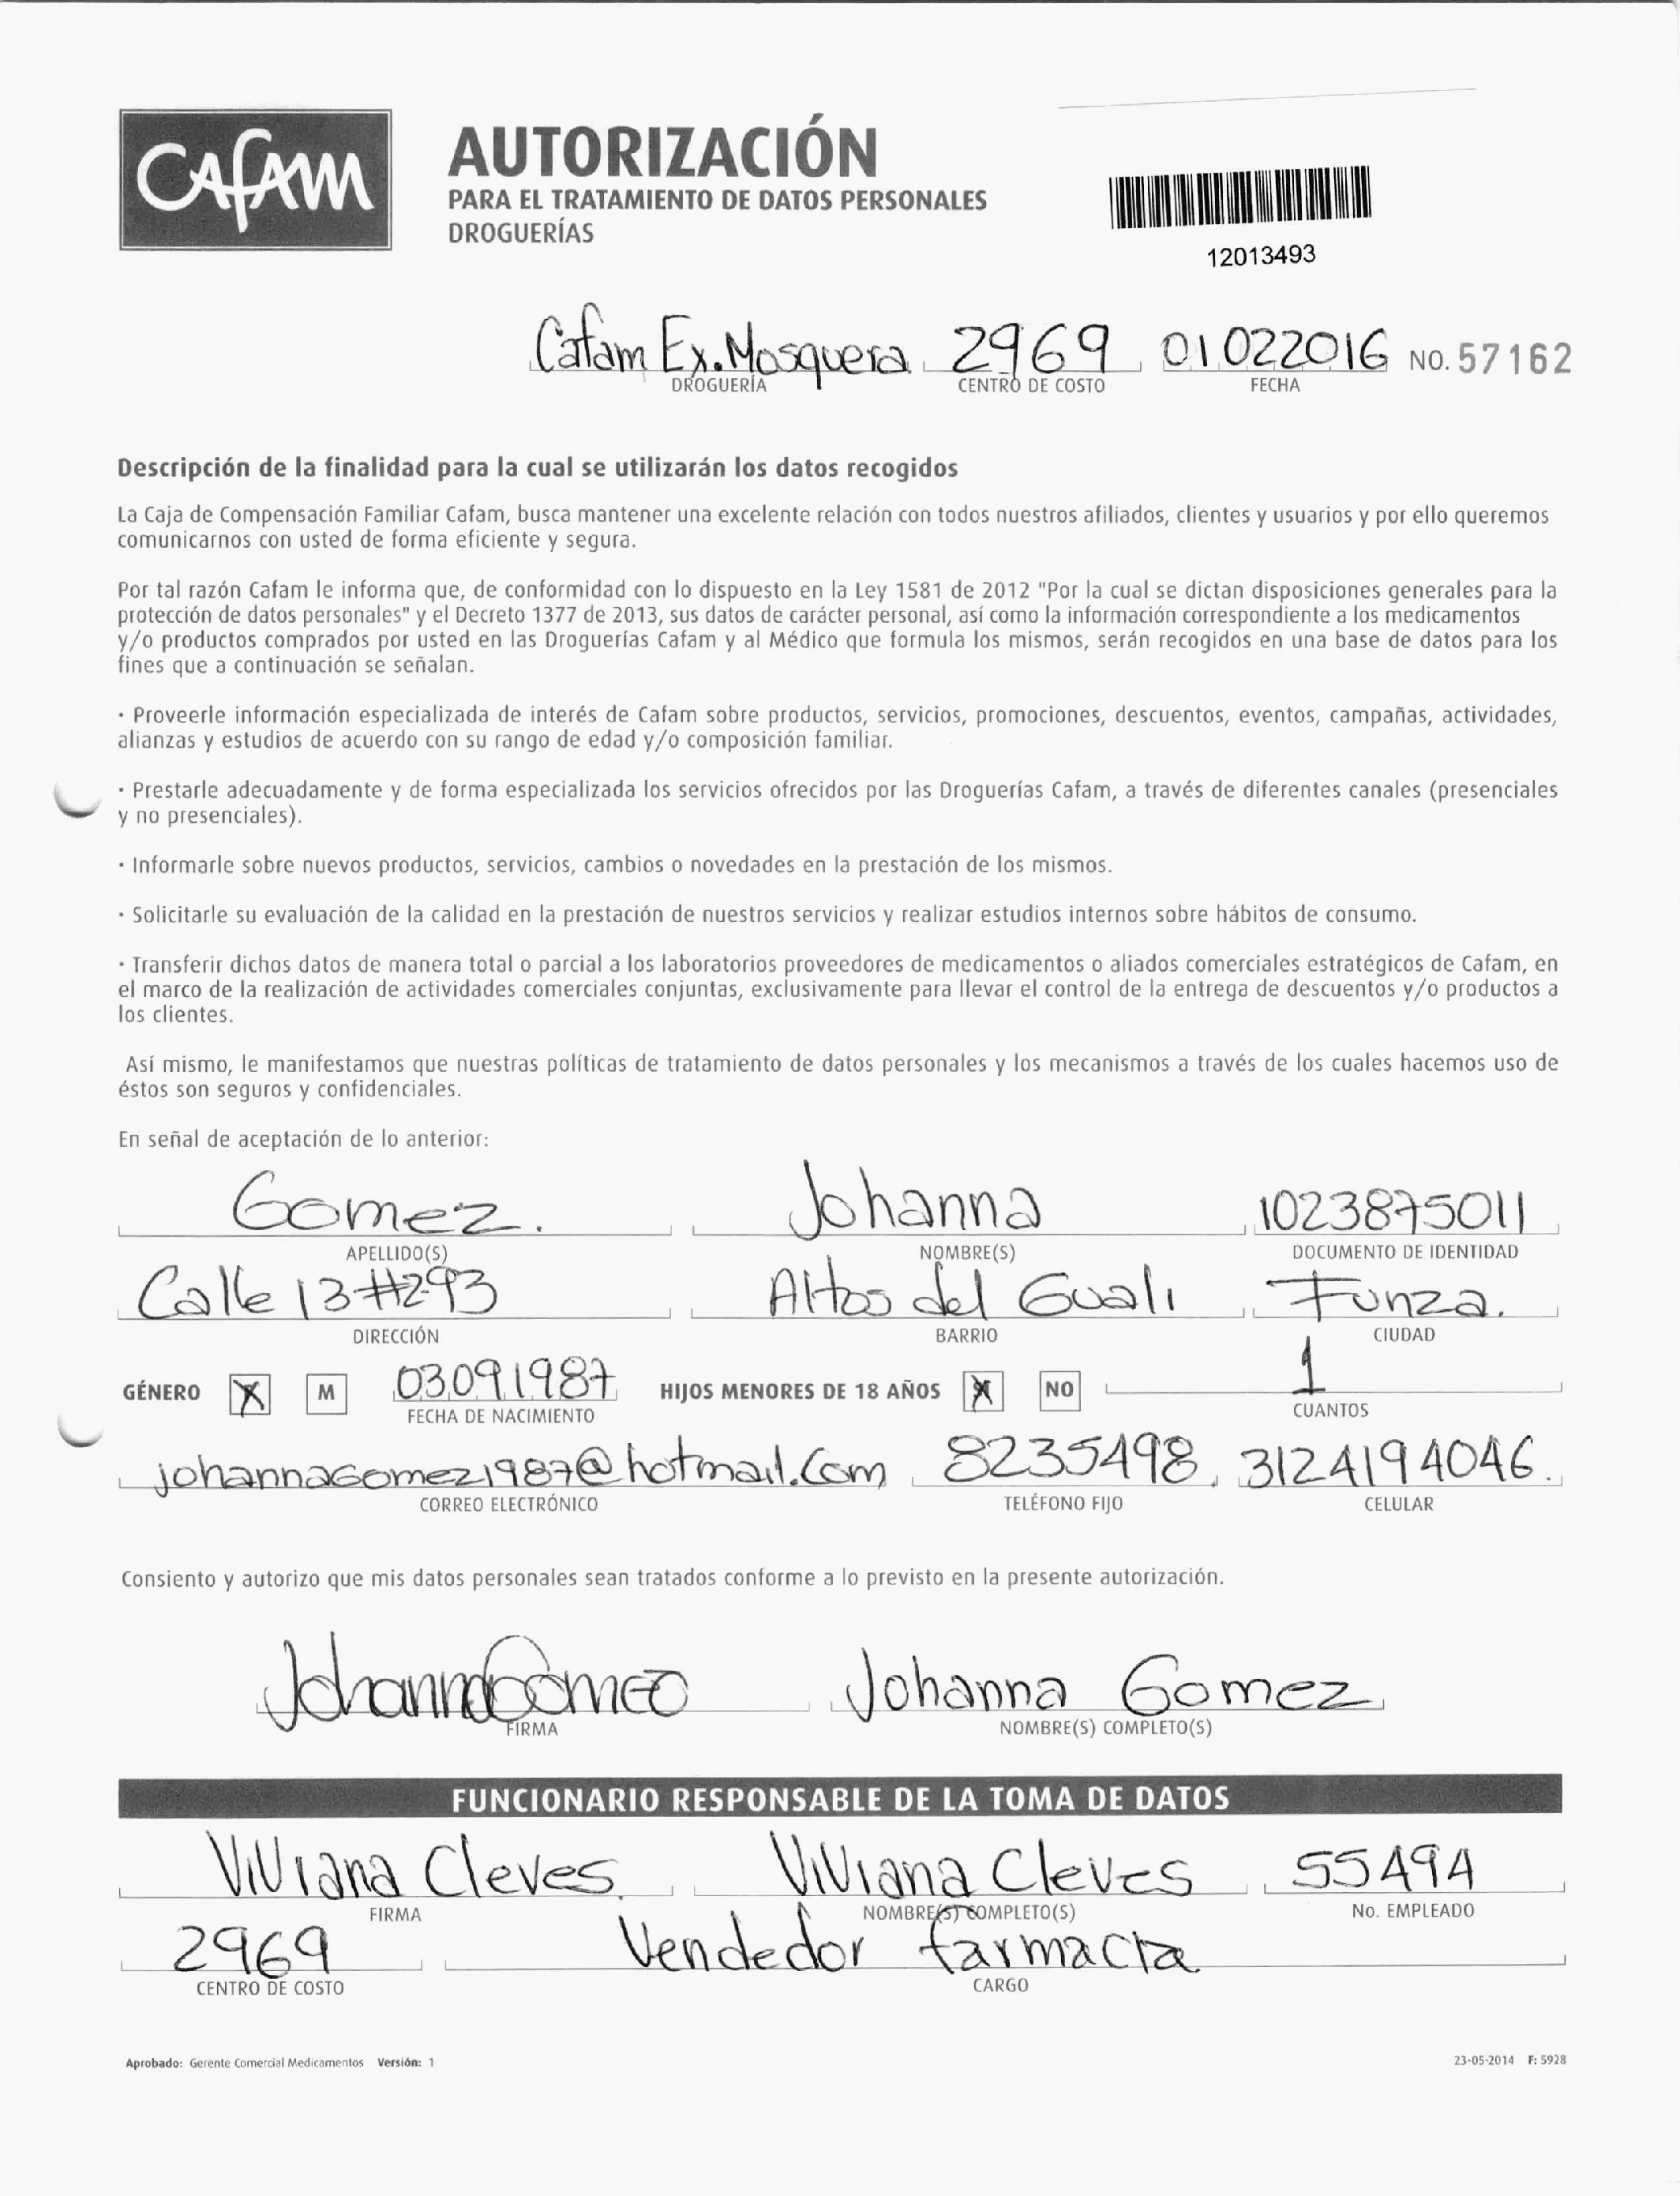 CAFAM
AUTORIZACIÓN
PARA EL TRATAMIENTO DE DATOS PERSONALES
DROGUERÍAS
12013493
Cafam Ex. Mosquera 2969 01022016 NO. 57162
DROGUERÍA CENTRO DE COSTO FECHA
Descripción de la finalidad para la cual se utilizarán los datos recogidos
La Caja de Compensación Familiar Cafam, busca mantener una excelente relación con todos nuestros afiliados, clientes y usuarios y por ello queremos
comunicarnos con usted de forma eficiente y segura.
Por tal razón Cafam le informa que, de conformidad con lo dispuesto en la Ley 1581 de 2012 "Por la cual se dictan disposiciones generales para la
protección de datos personales" y el Decreto 1377 de 2013, sus datos de carácter personal, así como la información correspondiente a los medicamentos
y/o productos comprados por usted en las Droguerías Cafam y al Médico que formula los mismos, serán recogidos en una base de datos para los
fines que a continuación se señalan.
· Proveerle información especializada de interés de Cafam sobre productos, servicios, promociones, descuentos, eventos, campañas, actividades,
alianzas y estudios de acuerdo con su rango de edad y/o composición familiar.
· Prestarle adecuadamente y de forma especializada los servicios ofrecidos por las Droguerías Cafam, a través de diferentes canales (presenciales
y no presenciales).
· Informarle sobre nuevos productos, servicios, cambios o novedades en la prestación de los mismos.
· Solicitarle su evaluación de la calidad en la prestación de nuestros servicios y realizar estudios internos sobre hábitos de consumo.
· Transferir dichos datos de manera total o parcial a los laboratorios proveedores de medicamentos o aliados comerciales estratégicos de Cafam, en
el marco de la realización de actividades comerciales conjuntas, exclusivamente para llevar el control de la entrega de descuentos y/o productos a
los clientes.
Así mismo, le manifestamos que nuestras políticas de tratamiento de datos personales y los mecanismos a través de los cuales hacemos uso de
éstos son seguros y confidenciales.
En señal de aceptación de lo anterior:
Gomez. Johanna 1023875011
APELLIDO(S) NOMBRE(S) DOCUMENTO DE IDENTIDAD
Calle 13 #293 Altos del Guali Funza.
DIRECCIÓN BARRIO CIUDAD
GÉNERO X M 03091987 HIJOS MENORES DE 18 AÑOS X NO 1
FECHA DE NACIMIENTO CUANTOS
johannaGomez1987@hotmail.Com 8235498 3124194046.
CORREO ELECTRÓNICO TELÉFONO FIJO CELULAR
Consiento y autorizo que mis datos personales sean tratados conforme a lo previsto en la presente autorización.
Johanna Gomez Johanna Gomez
FIRMA NOMBRE(S) COMPLETO(S)
FUNCIONARIO RESPONSABLE DE LA TOMA DE DATOS
Viviana Cleves Viviana Cleves 55494
FIRMA NOMBRE(S) COMPLETO(S) No. EMPLEADO
2969 Vendedor farmacia
CENTRO DE COSTO CARGO
Aprobado: Gerente Comercial Medicamentos Versión: 1 23-05-2014 F: 5928